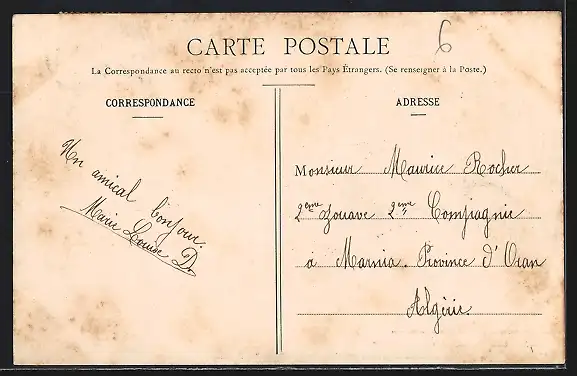 6
CARTE POSTALE
La Correspondance au recto n'est pas acceptée par tous les Pays Étrangers. (Se renseigner à la Poste.)
CORRESPONDANCE
Un amical bonjour.
Marie Louise D.
ADRESSE
Monsieur Maurice Rocher
2eme Zouave 2eme Compagnie
à Marnia. Province d'Oran
Algérie